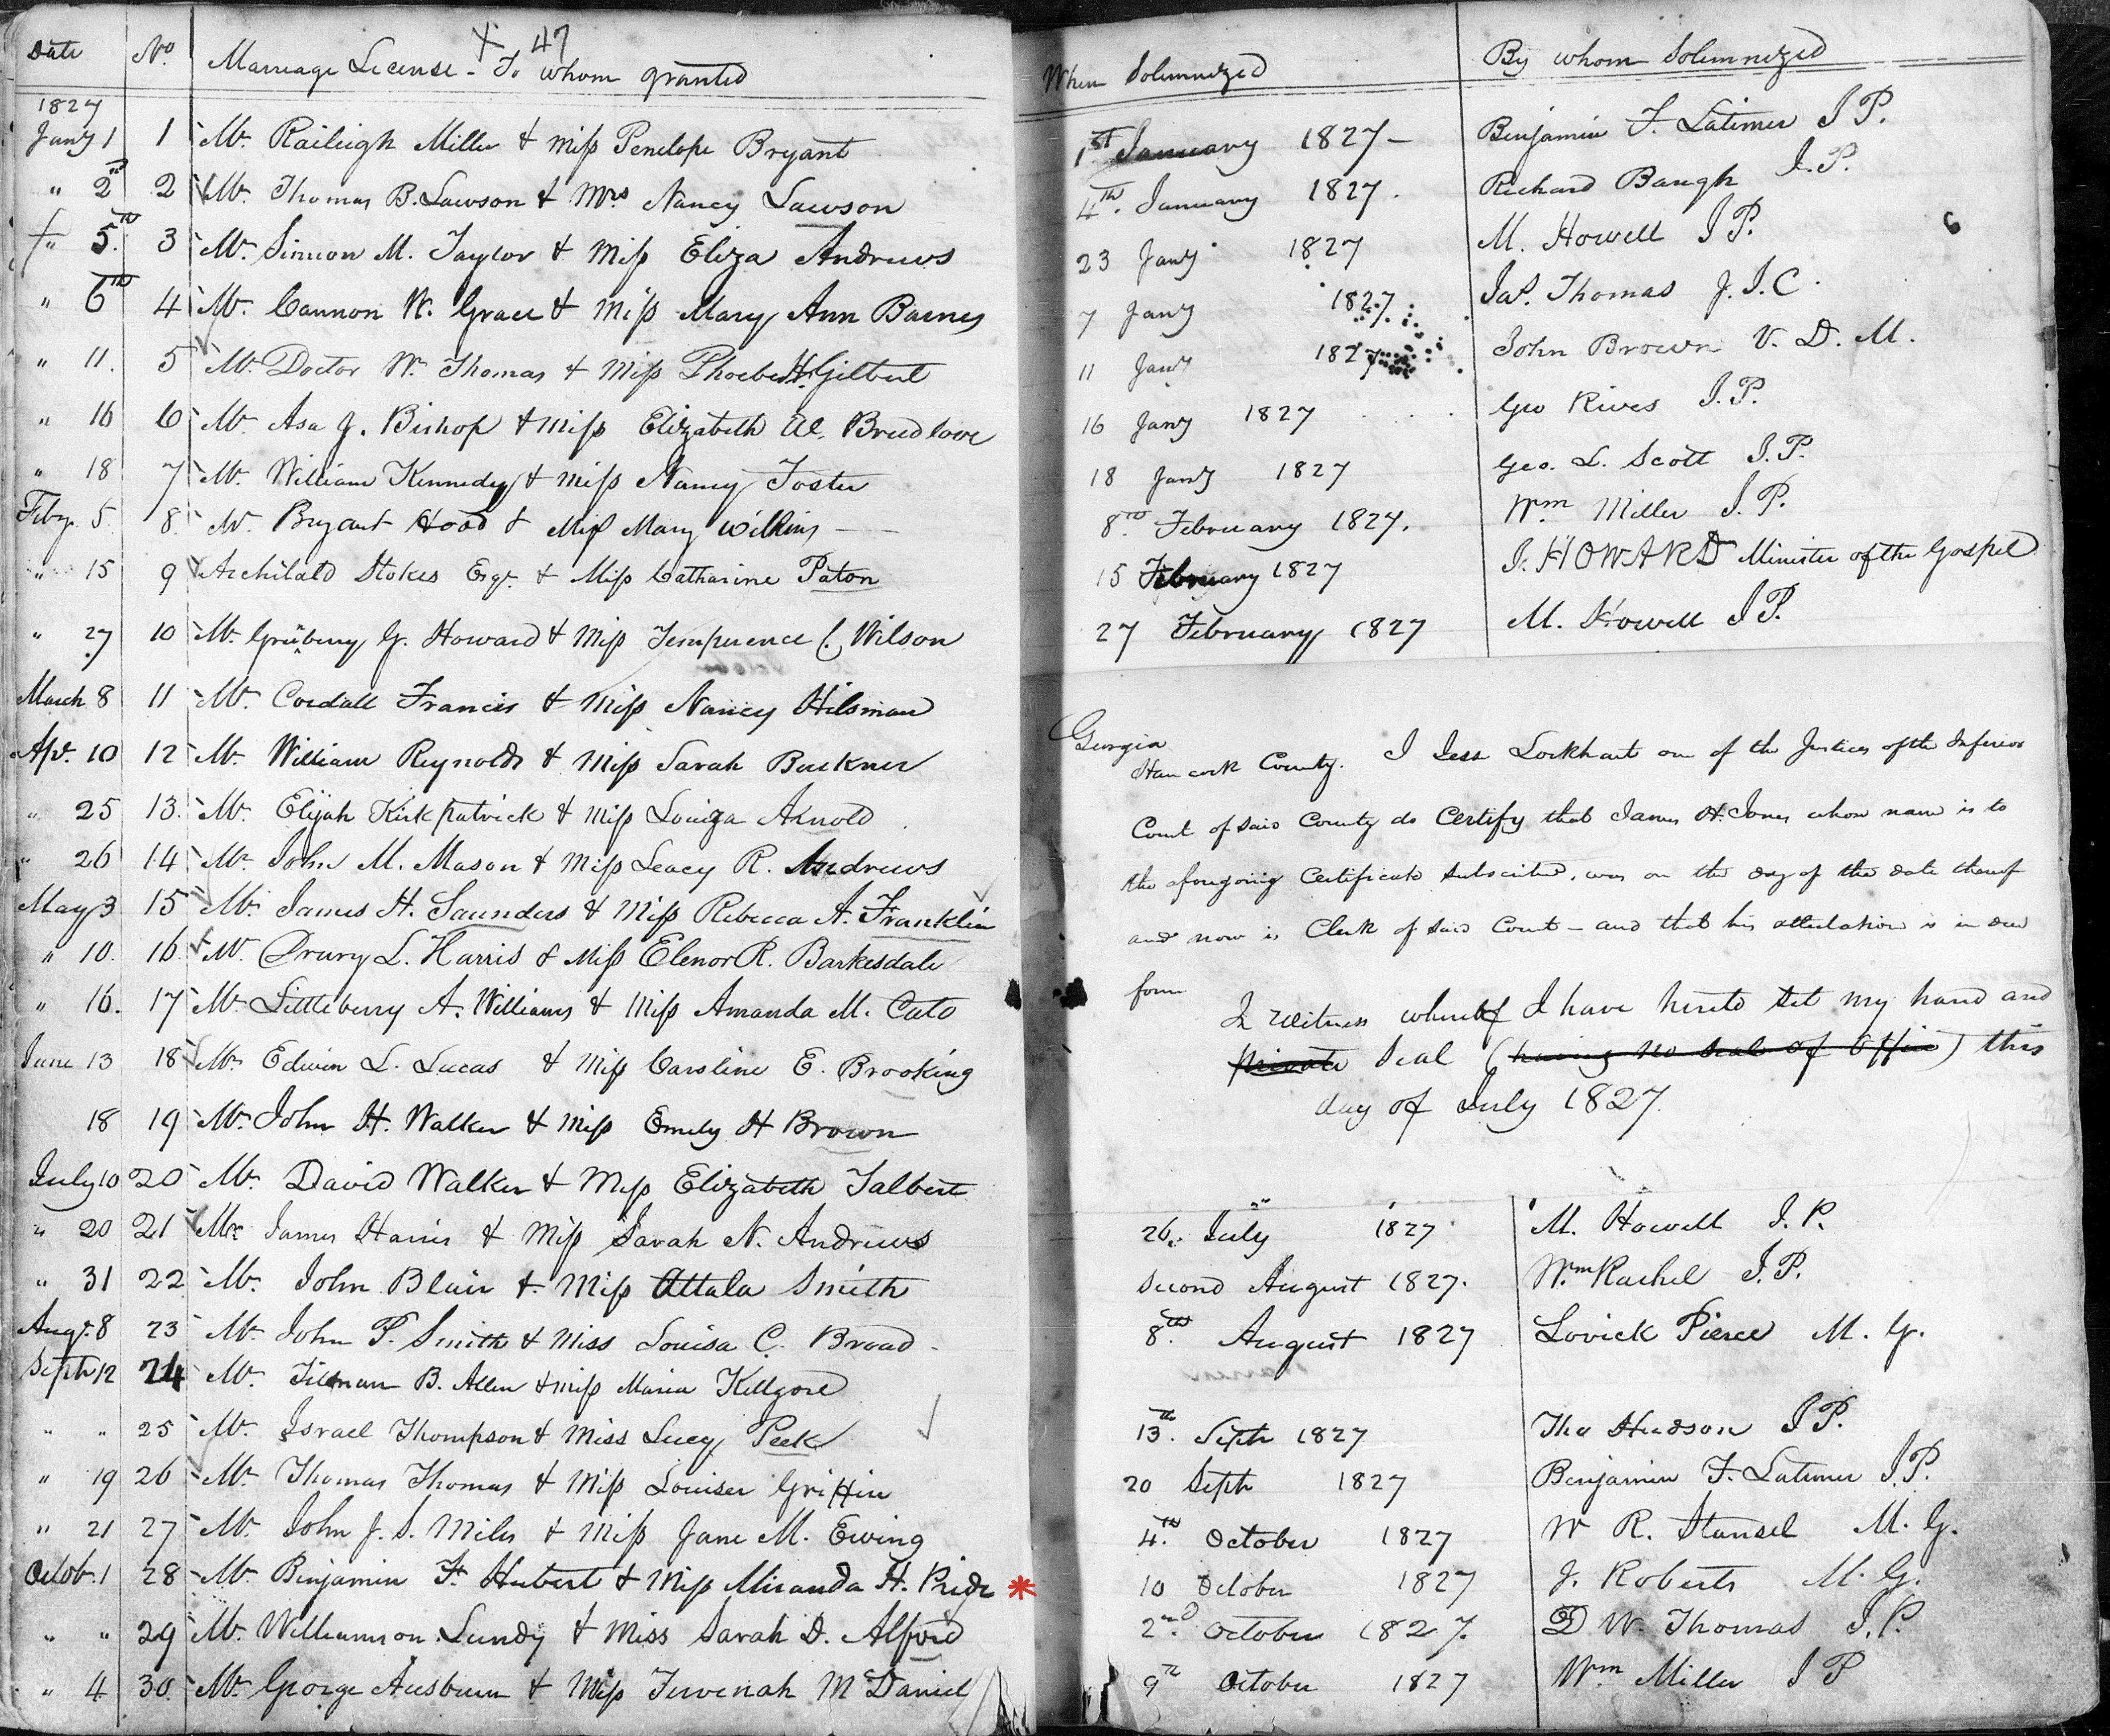 47
Date No. Marriage License - To whom granted
1827
Jany 1 1 Mr. Raileigh Miller & Miss Penelope Bryant
" 2nd 2 Mr. Thomas B. Lawson & Mrs Nancy Lawson
" 5th 3 Mr. Simeon M. Taylor & Miss Eliza Andrews
" 6th 4 Mr. Cannon W. Grace & Miss Mary Ann Barnes
" 11. 5 Mr. Doctor W. Thomas & Miss Phoebe H. Gilbert
" 16 6 Mr. Asa J. Bishop & Miss Elizabeth W. Breedlove
" 18 7 Mr. William Kennedy & Miss Nancy Foster
Feby. 5 8. Mr. Bryant Hood & Miss Mary Wilkins
" 15 9 Archibald Stokes Esqr. & Miss Catharine Paton
" 27 10 Mr. Greenberry G. Howard & Miss Temperence C. Wilson
March 8 11 Mr. Cordall Francis & Miss Nancy Hilsman
Apr. 10 12 Mr. William Reynolds & Miss Sarah Buckner
" 25 13. Mr. Elijah Kirkpatrick & Miss Louiza Arnold
" 26 14 Mr. John M. Mason & Miss Leacy R. Andrews
May 3 15 Mr. James H. Saunders & Miss Rebecca A. Franklin
" 10. 16. Mr. Drury L. Harris & Miss Elenor R. Barkesdale
" 16. 17 Mr. Littleberry A. Williams & Miss Amanda M. Cato
June 13 18 Mr. Edwin L. Lucas & Miss Caroline E. Brooking
18 19 Mr. John H. Walker & Miss Emely H Brown
July 10 20 Mr. David Walker & Miss Elizabeth Talbert
" 20 21 Mr. James Harris & Miss Sarah N. Andrews
" 31 22 Mr. John Blair & Miss Attala Smith
Augt. 8 23 Mr. John P. Smith & Miss Louisa C. Broad
Septr 12 24 Mr. Tilman B. Allen & Miss Maria Killgore
" " 25 Mr. Israel Thompson & Miss Lucy Peek
" 19 26 Mr. Thomas Thomas & Miss Louiser Griffin
" 21 27 Mr. John J. S. Miles & Miss Jane M. Ewing
Octob. 1 28 Mr. Benjamin F. Hubert & Miss Miranda H. Pride *
" " 29 Mr. Williamson Lundy & Miss Sarah D. Alford
" 4 30. Mr. George Ausburn & Miss Tervenah McDaniel
When Solemnized By whom Solemnized
1st January 1827 - Benjamin F. Latimer J P.
4th. January 1827. Richard Baugh J. P.
23 Jany 1827 M. Howell J P. 6
7 Jany 1827 Jas. Thomas J. I. C.
11 Jany 1827 John Brown V. D. M.
16 Jany 1827 Geo Rives J. P.
18 Jany 1827 Geo. L. Scott J. P.
8th February 1827. Wm Miller J. P.
15 February 1827 J. HOWARD Minister of the Gospel
27 February 1827 M. Howell J P.
Georgia
Hancock County. I Jesse Lockhart one of the Justices of the Inferior
Court of said County do Certify that James H. Jones whose name is to
the aforegoing Certificate subscribed, was on the day of the date thereof
and now is Clerk of said Court - and that his attestation is in due
form
In Witness whereof I have hereto set my hand and
private Seal (having no seal of Office) this
day of July 1827.
26. July 1827 M. Howell J. P.
Second August 1827. Wm Rachel J. P.
8th. August 1827 Lovick Pierce M. G.
13th. Septr 1827 Tho Hudson J P.
20 Septr 1827 Benjamin F. Latimer J. P.
4th. October 1827 W R. Stansel M. G.
10 October 1827 J. Roberts M. G.
2nd. October 1827. D W. Thomas J. P.
9th October 1827 Wm Miller J P